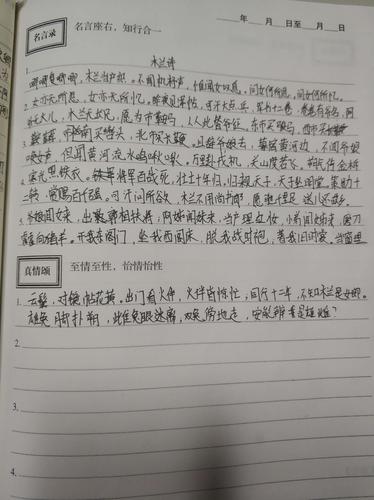 年 月 日至 月 日
名言录 名言座右，知行合一
木兰诗
1. 唧唧复唧唧，木兰当户织。不闻机杼声，惟闻女叹息。问女何所思，问女何所忆。
2. 女亦无所思，女亦无所忆。昨夜见军帖，可汗大点兵，军书十二卷，卷卷有爷名，阿
爷无大儿，木兰无长兄，愿为市鞍马，从此替爷征。东市买骏马，西市买
3. 鞍鞯，南市买辔头，北市买长鞭。旦辞爷娘去，暮宿黄河边，不闻爷娘
唤女声，但闻黄河流水鸣。万里赴戎机，关山度若飞。朔气传金柝
寒光照铁衣。将军百战死，壮士十年归。归来见天子，天子坐明堂。策勋十二
转，赏赐百千强。可汗问所欲，木兰不用尚书郎，愿驰千里足，送儿还故乡。
爷娘闻女来，出郭相扶将，阿姊闻妹来，当户理红妆，小弟闻姊来，磨刀
霍霍向猪羊。开我东阁门，坐我西阁床，脱我战时袍，著我旧时裳。当窗理
真情颂 至情至性，怡情怡性
1. 云鬓，对镜帖花黄。出门看火伴，火伴皆惊忙，同行十二年，不知木兰是女郎。
雄兔脚扑朔，雌兔眼迷离，双兔傍地走，安能辨我是雄雌？
2.
3.
4.